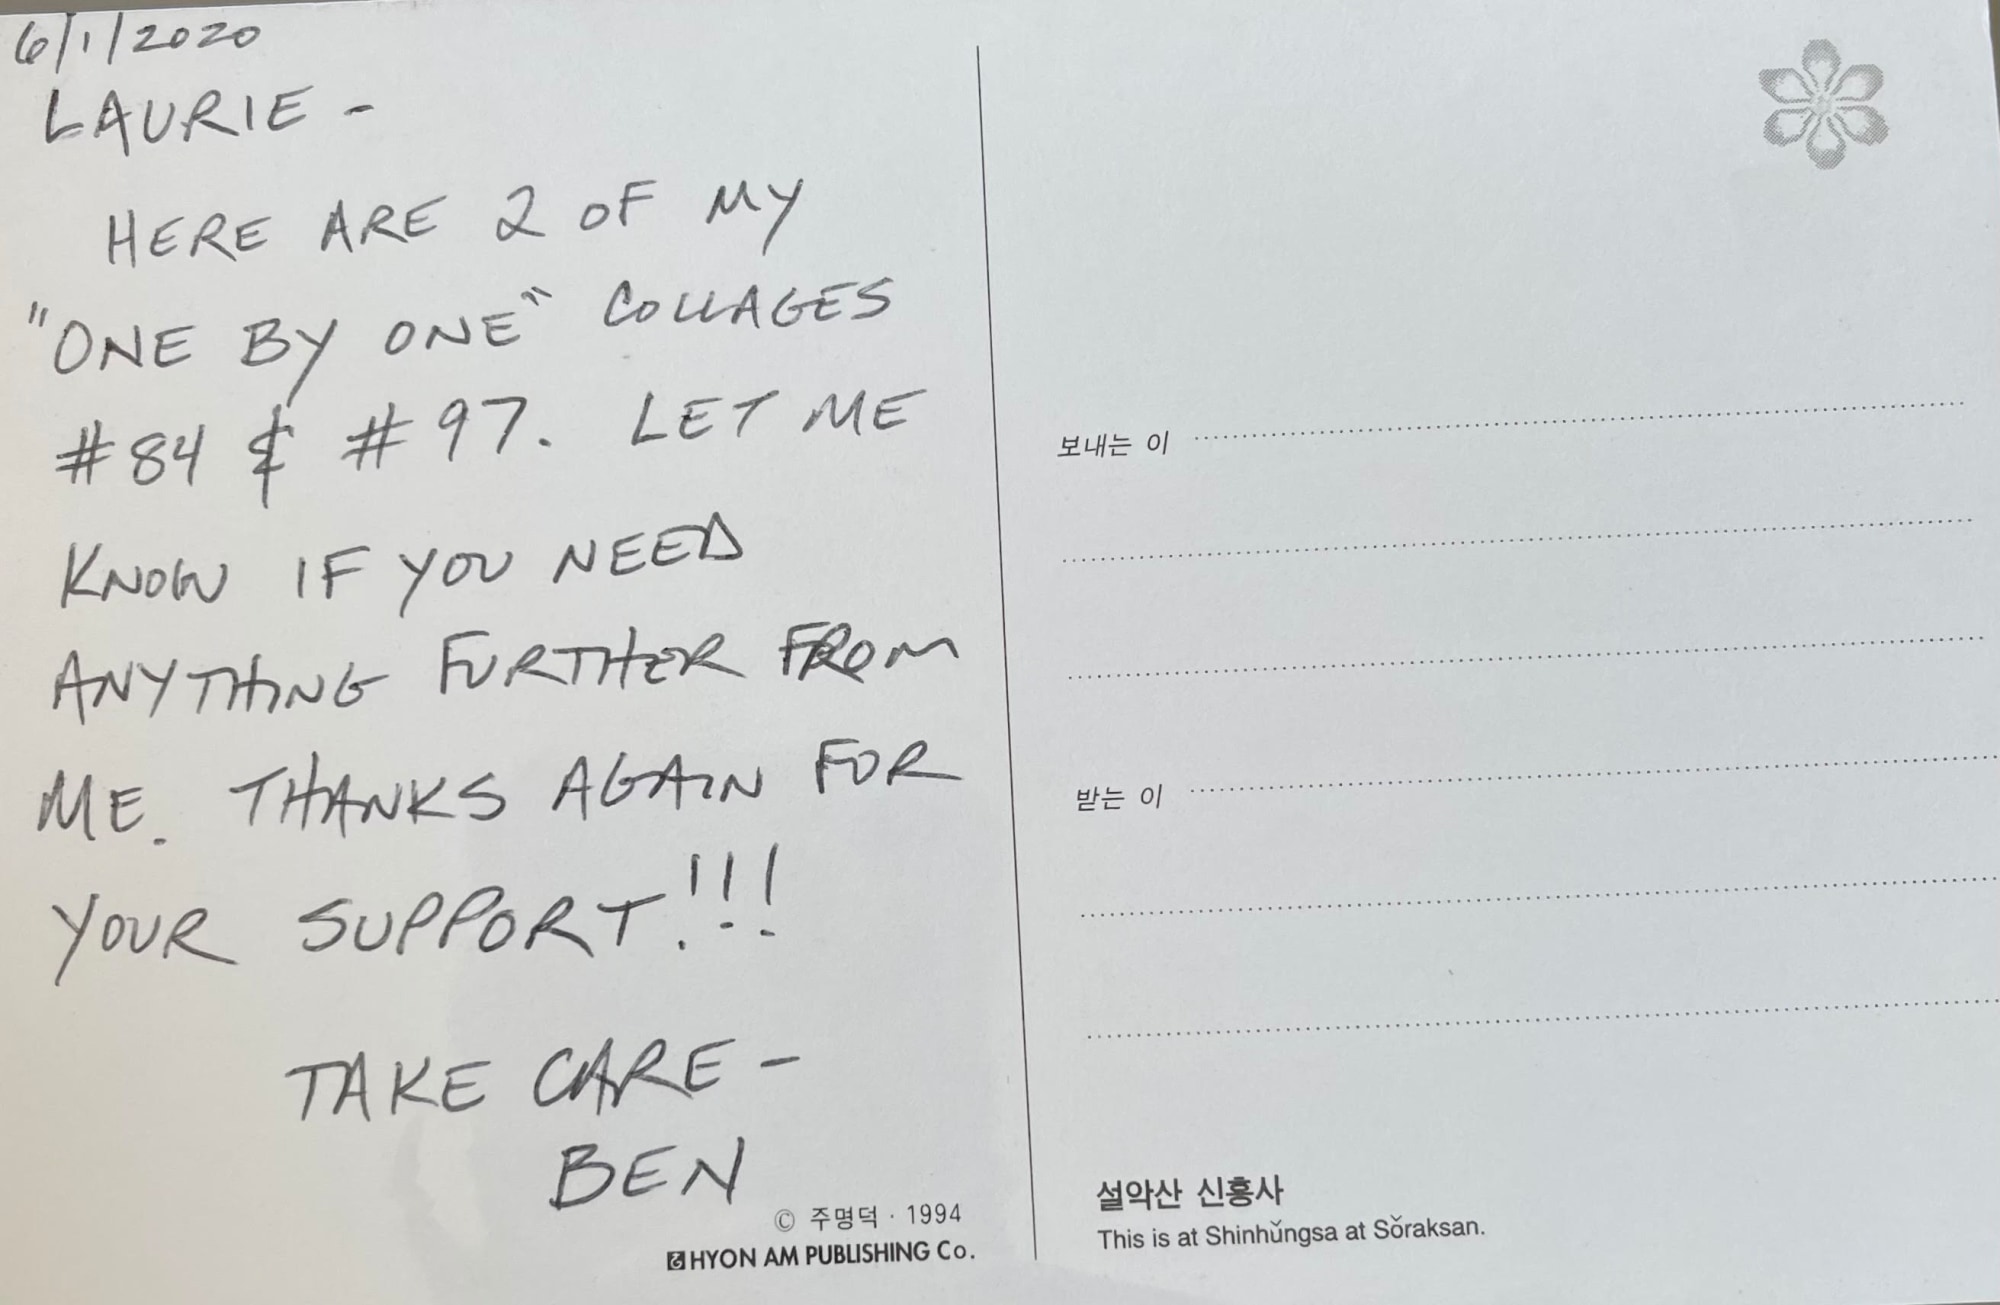 6/1/2020
LAURIE -
HERE ARE 2 OF MY
"ONE BY ONE" COLLAGES
#84 & #97. LET ME
KNOW IF YOU NEED
ANYTHING FURTHER FROM
ME. THANKS AGAIN FOR
YOUR SUPPORT!!!!
TAKE CARE -
BEN
© 주명덕 · 1994
HYON AM PUBLISHING Co.
보내는 이
받는 이
설악산 신흥사
This is at Shinhŭngsa at Sŏraksan.